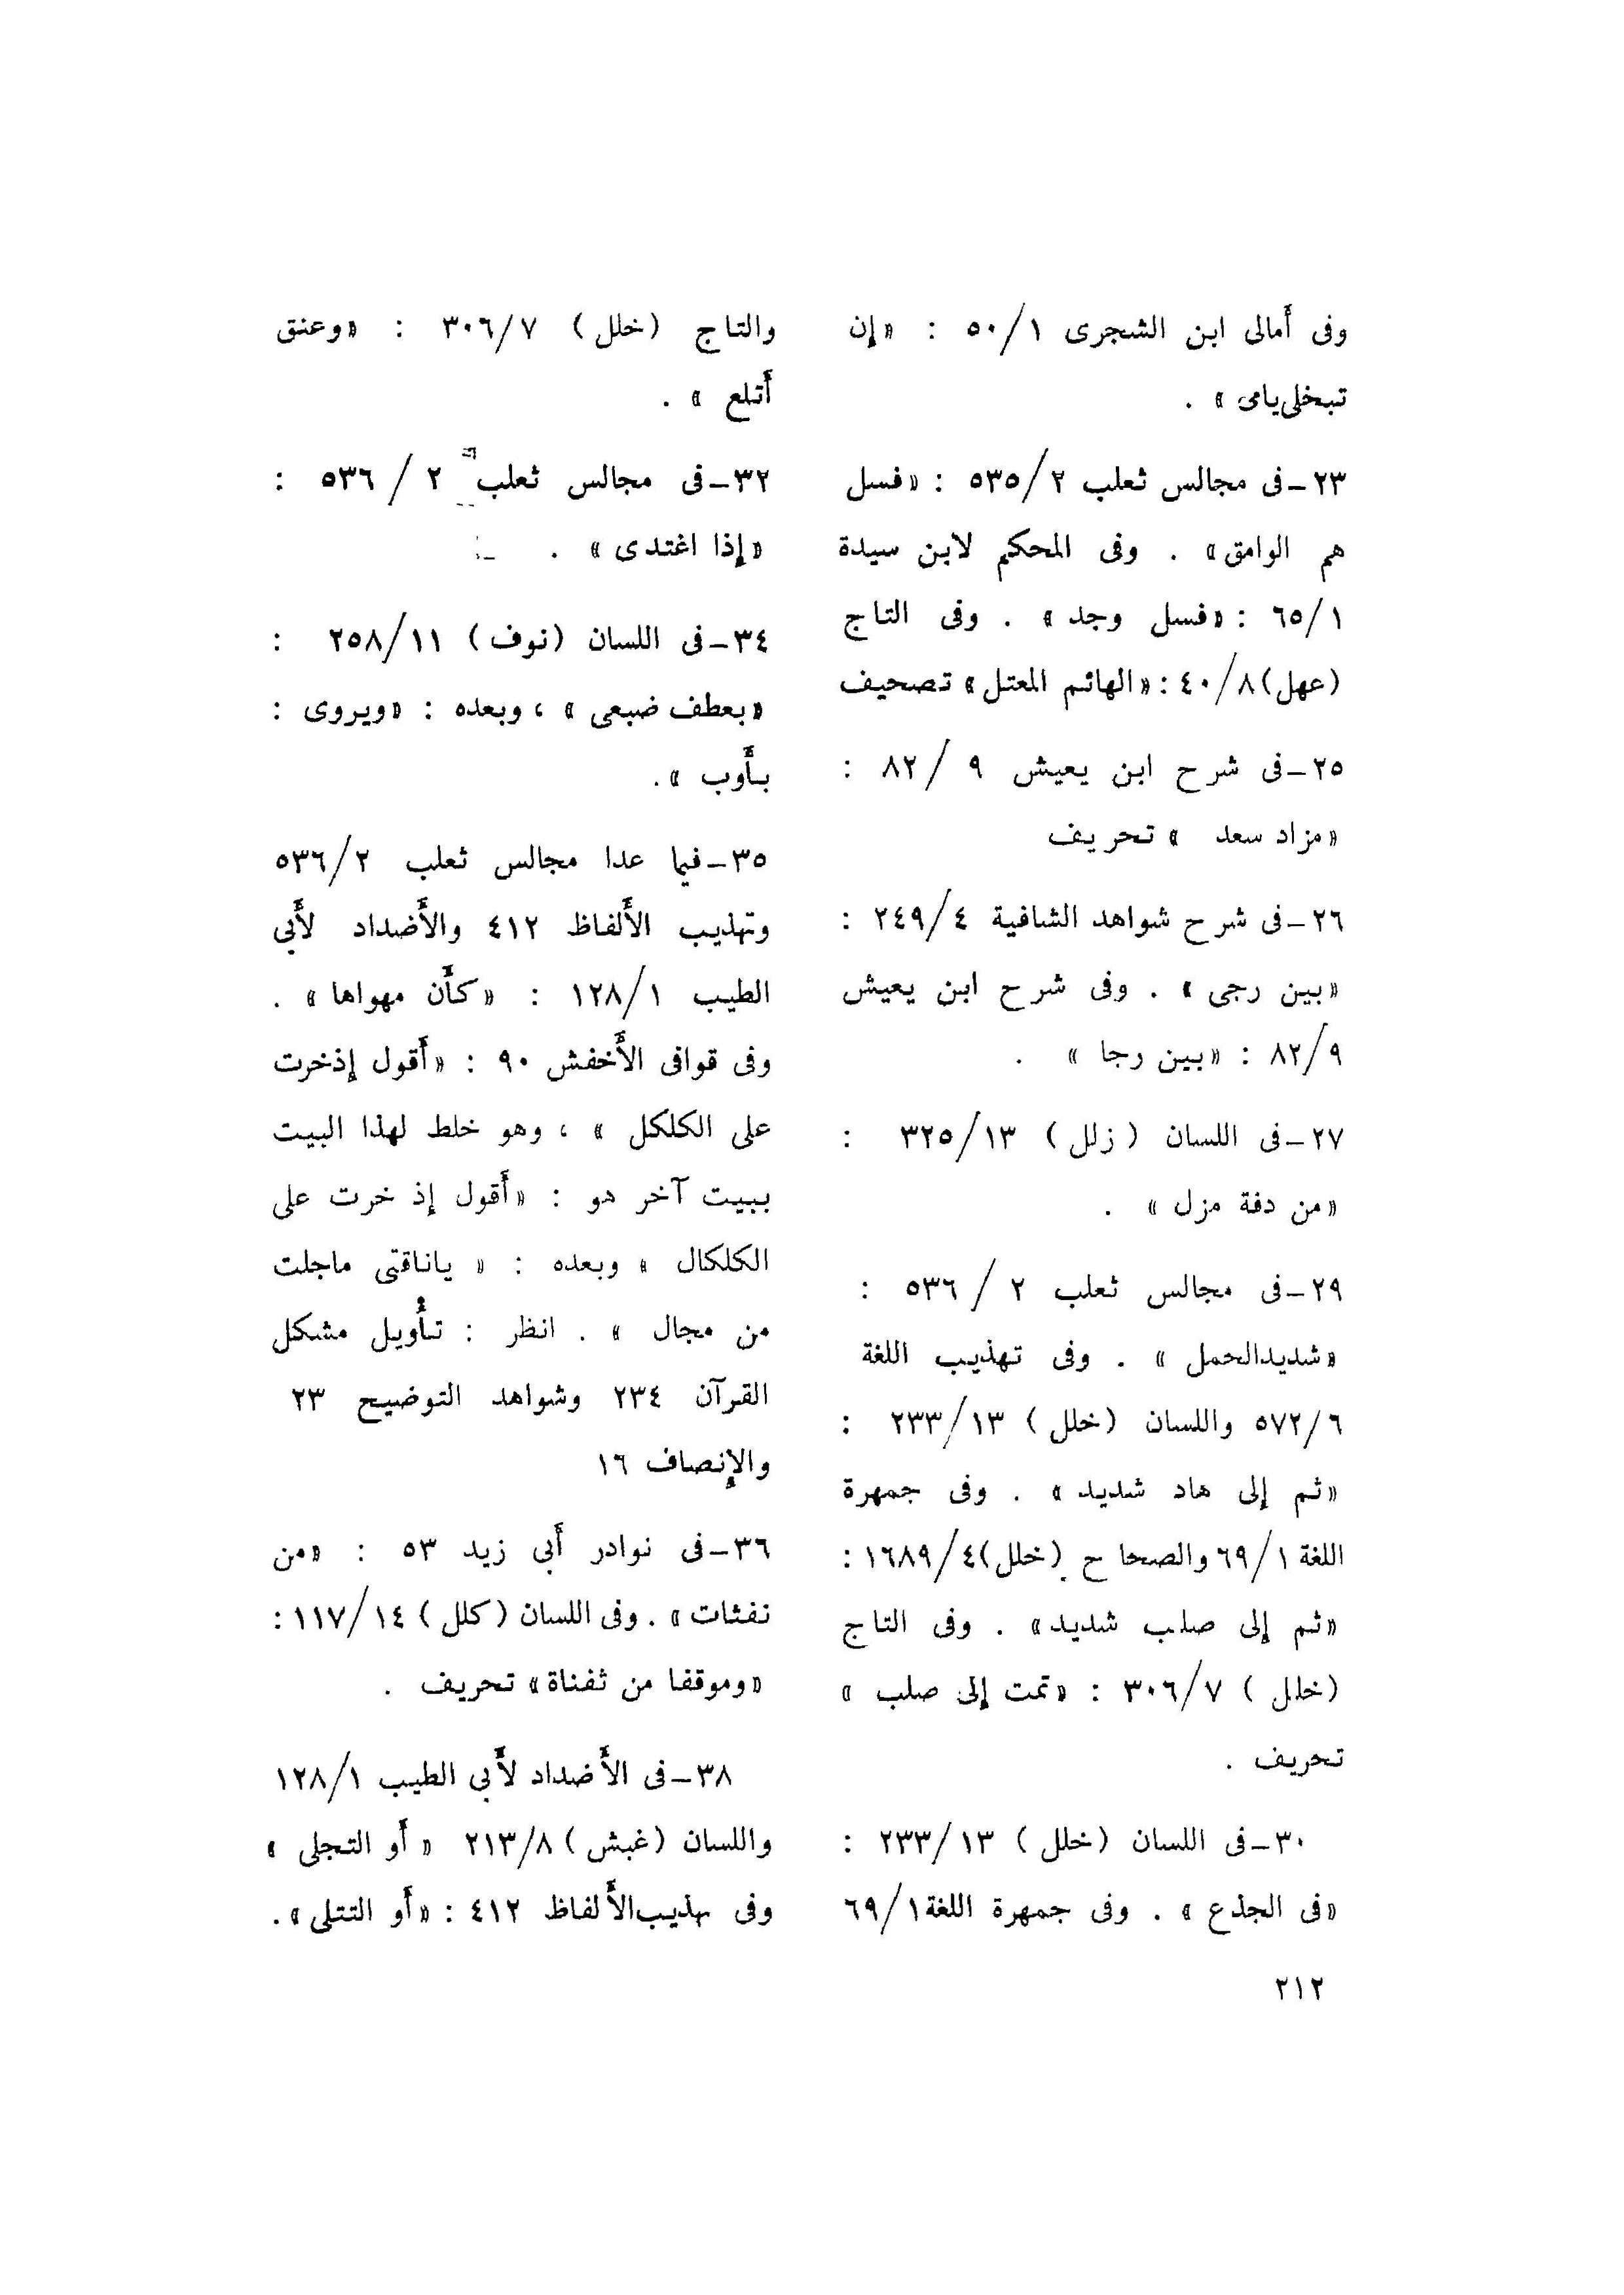 وفى أمالى ابن الشجرى ١/ ٥٠ : «إن
تبخلى يامى» .
٢٣ـ فى مجالس ثعلب ٢/ ٥٣٥ : «فسل
هم الوامق» . وفى المحكم لابن سيدة
١/ ٦٥ : «فسل وجد» . وفى التاج
(عهل) ٨/ ٤٠ : «الهائم المعتل» تصحيف
٢٥ـ فى شرح ابن يعيش ٩ / ٨٢ :
«مزاد سعد » تحريف
٢٦ـ فى شرح شواهد الشافية ٤/ ٢٤٩ :
«بين رجى» . وفى شرح ابن يعيش
٩/ ٨٢ : «بين رجا » .
٢٧ـ فى اللسان ( زلل ) ١٣/ ٣٢٥ :
«من دفة مزل» .
٢٩ـ فى مجالس ثعلب ٢ / ٥٣٦ :
«شديدالحمل » . وفى تهذيب اللغة
٦/ ٥٧٢ واللسان (خلل ) ١٣/ ٢٣٣ :
«ثم إلى هاد شديد» . وفى جمهرة
اللغة ١/ ٦٩ والصحاح (خلل) ٤/ ١٦٨٩ :
«ثم إلى صلب شديد» . وفى التاج
(خلل ) ٧/ ٣٠٦ : «تمت إلى صلب »
تحريف .
٣٠ـ فى اللسان (خلل ) ١٣/ ٢٣٣ :
«فى الجذع» . وفى جمهرة اللغة ١/ ٦٩
والتاج (خلل) ٧/ ٣٠٦ : «وعنق
أتلع » .
٣٢ـ فى مجالس ثعلب ٢ / ٥٣٦ :
«إذا اغتدى» .
٣٤ـ فى اللسان (نوف ) ١١/ ٢٥٨ :
«بعطف ضبعى » ، وبعده : «ويروى :
بأوب ».
٣٥ـ فيما عدا مجالس ثعلب ٢/ ٥٣٦
وتهذيب الألفاظ ٤١٢ والأضداد لأبى
الطيب ١/ ١٢٨ : «كأن مهواها» .
وفى قوافى الأخفش ٩٠ : «أقول إذخرت
على الكلكل » ، وهو خلط لهذا البيت
ببيت آخر هو : «أقول إذ خرت على
الكلكال » وبعده : « ياناقتى ماجلت
من مجال » . انظر : تأويل مشكل
القرآن ٢٣٤ وشواهد التوضيح ٢٣
والإنصاف ١٦
٣٦ـ فى نوادر أبى زيد ٥٣ : «من
نفثات» . وفى اللسان (كلل ) ١٤/ ١١٧ :
«وموقفا من ثفناة» تحريف .
٣٨ـ فى الأضداد لأبى الطيب ١/ ١٢٨
واللسان (غبش ) ٨/ ٢١٣ « أو التجلى »
وفى تهذيب الألفاظ ٤١٢ : «أو التتلى» .
٢١٢